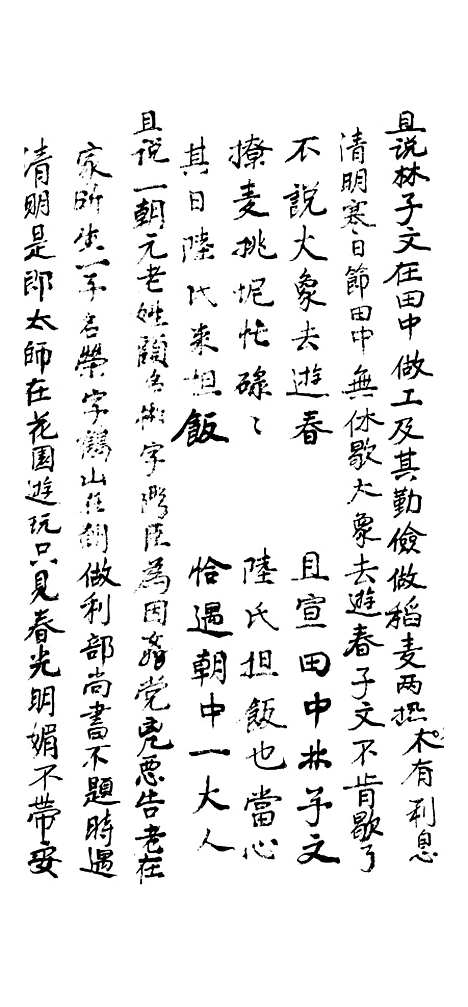 且说林子文在田中做工及其勤儉做稻麦两想大有利息
清明寒日節田中無休歇大象去遊春子文不肯歇了
不說大象去遊春　且宣田中林子文
撩麦挑坭忙碌〻　陸氏担飯也當心
其日陸氏来担飯　恰遇朝中一大人
且说一朝元老姓顧名字衛臣為因奸党兇惡告老在
家所生一子名榮字鶴山在朝做利部尚書不題時遇
清明是郎太師在花园遊玩只見春光明媚不帶安